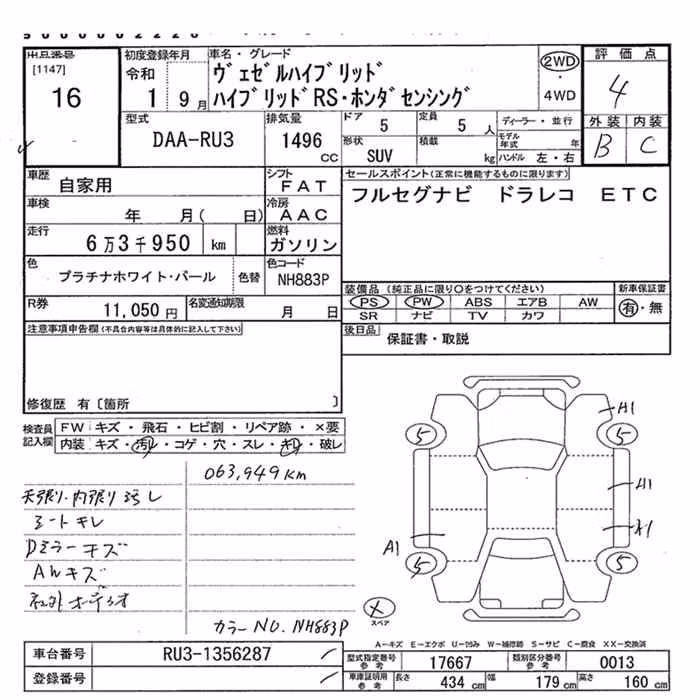 出品番号
[1147]
16
初度登録年月
令和
1 9月
車名・グレード
ヴェゼルハイブリッド
ハイブリッドRS・ホンダセンシング
2WD
・
4WD
評価点
4
外装 内装
B C
型式
DAA-RU3
排気量
1496
cc
ドア 5
定員 5 人
ディーラー・並行
モデル年式 年
形状
SUV
積載
kg
ハンドル 左・右
車歴
自家用
シフト
FAT
セールスポイント(正常に機能するものに限ります)
フルセグナビ ドラレコ ETC
車検
年 月( 日)
冷房
AAC
走行
6万3千950 km
燃料
ガソリン
色
プラチナホワイト・パール
色替
色コード
NH883P
装備品 (純正品に限り○をつけてください)
PS PW ABS エアB AW
SR ナビ TV カワ
新車保証書
有・無
R券
11,050円
名変通知期限
月 日
後日品
保証書・取説
注意事項申告欄(不具合内容等は具体的に記入して下さい)
修復歴 有〔箇所 〕
検査員記入欄
FW キズ・飛石・ヒビ割・リペア跡・×要
内装 キズ・汚れ・コゲ・穴・スレ・キレ・破レ
063,949km
天張り・内張り汚レ
シートキレ
Dミラーキズ
AWキズ
カラーNO. NH883P
A1
5
5
A1
A1
5
5
X
スペア
A-キズ E-エクボ U-凹み W-補修跡 S-サビ C-腐食 XX-交換済
車台番号
RU3-1356287
登録番号
型式指定番号参考
17667
類別区分番号参考
0013
車庫証明用参考
長さ 434 cm
幅 179 cm
高さ 160 cm